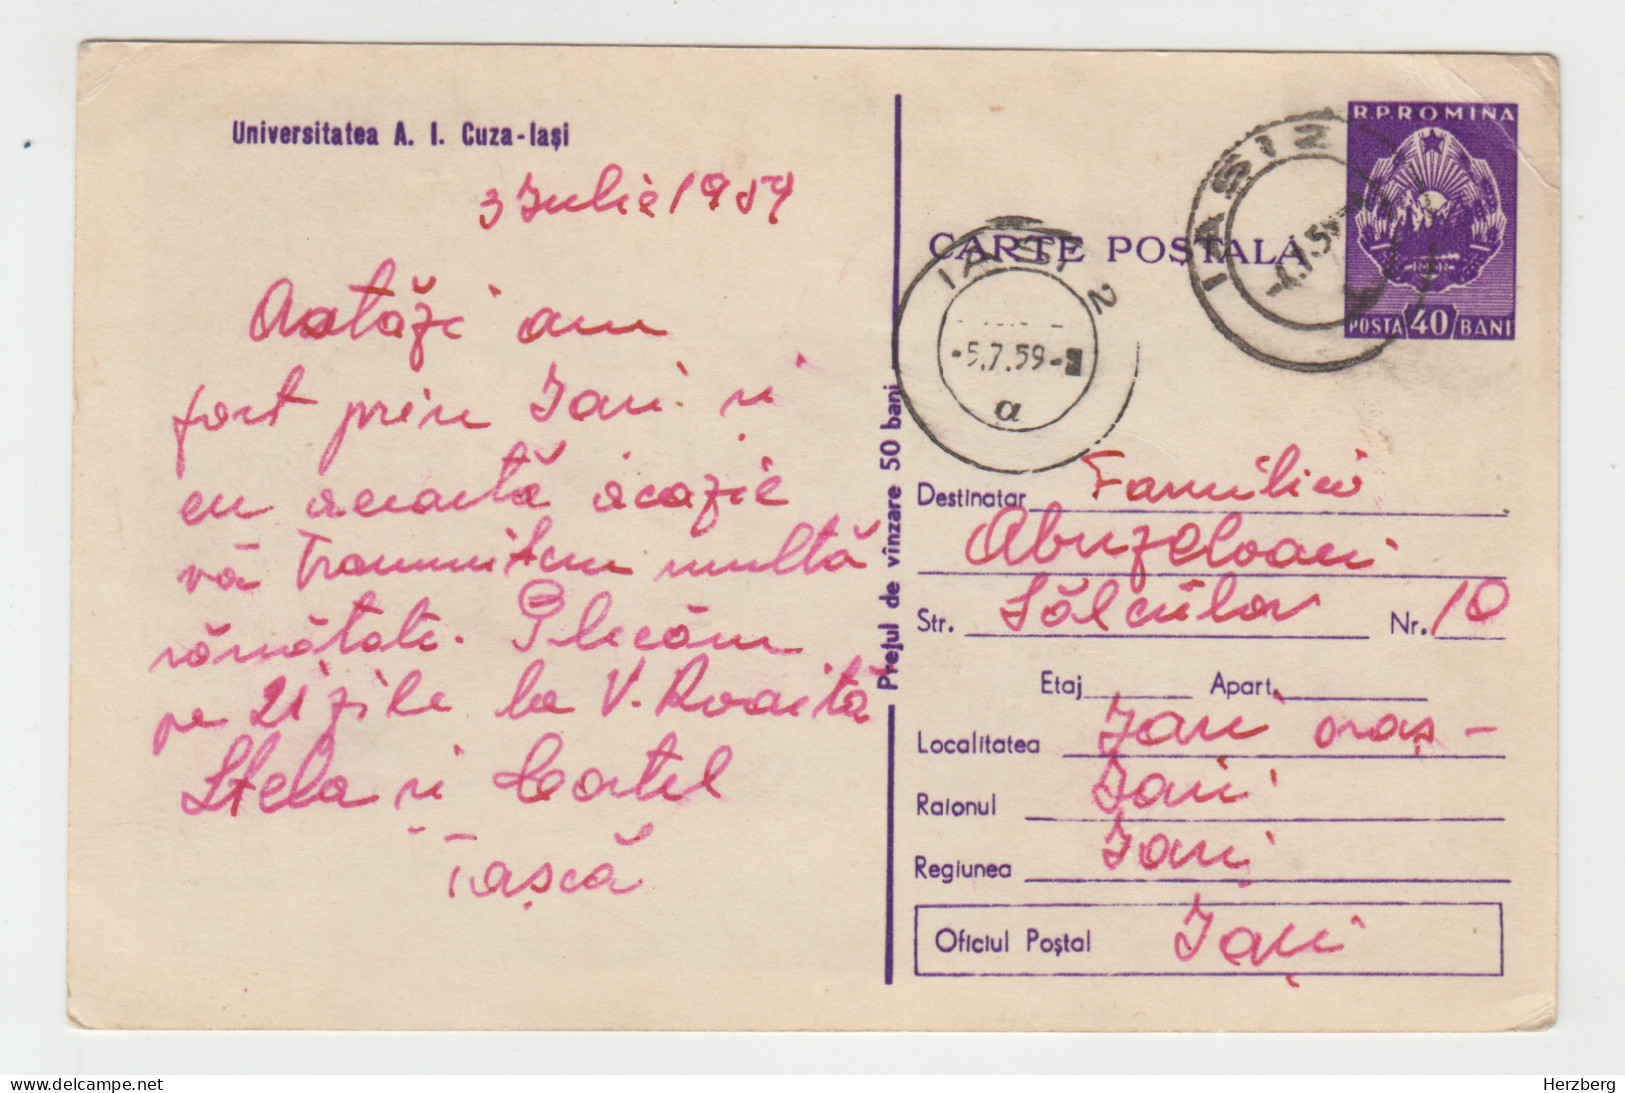 Universitatea A. I. Cuza-Iași
3 Iulie 1959
Astăzi am
fost prin Iași și
cu această ocazie
vă transmitem multă
sănătate. Plecăm
pe 21 zile la V. Roaită
Stela și Costel
Tașcă
Prețul de vînzare 50 bani
CARTE POȘTALĂ
R.P.ROMINA
POSTA 40 BANI
IASI 2
IASI 2
-5.7.59-
a
Destinatar Familiei
Abuzeloaei
Str. Sălciilor Nr. 10
Etaj Apart.
Localitatea Iași oraș -
Raionul Iași
Regiunea Iași
Oficiul Poștal Iași
delcampe.net
Herzberg